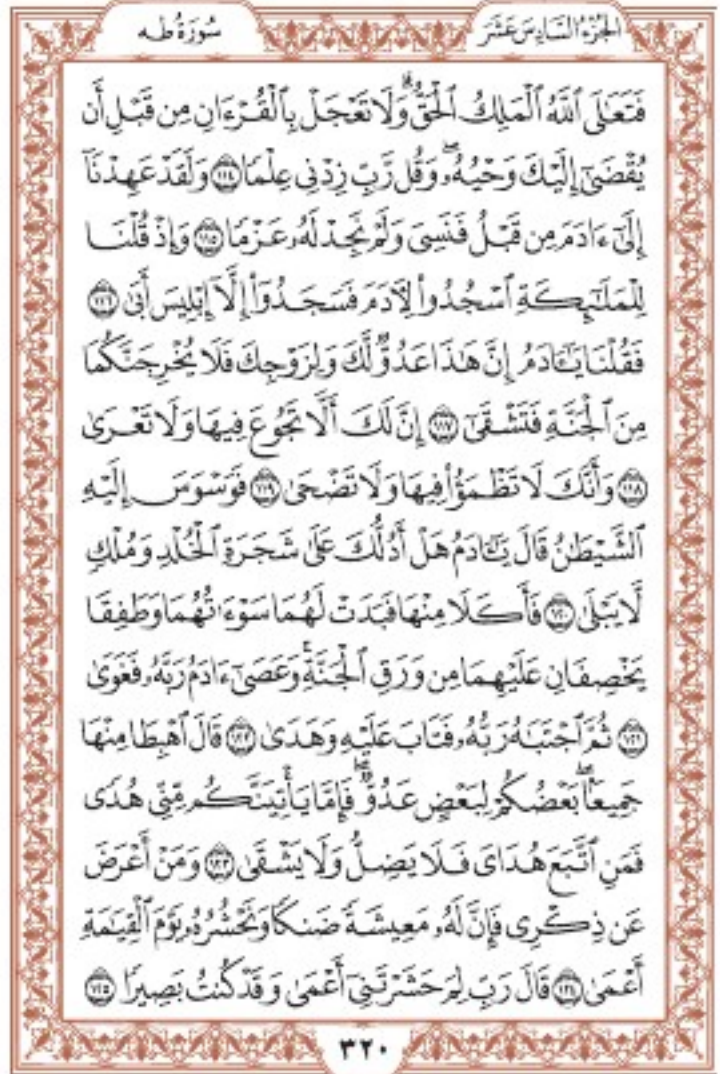 سُورَةُ طه
الجُزْءُ السَّادِسَ عَشَرَ
فَتَعَٰلَى ٱللَّهُ ٱلْمَلِكُ ٱلْحَقُّ ۗ وَلَا تَعْجَلْ بِٱلْقُرْءَانِ مِن قَبْلِ أَن
يُقْضَىٰٓ إِلَيْكَ وَحْيُهُۥ ۖ وَقُل رَّبِّ زِدْنِى عِلْمًا ١١٤ وَلَقَدْ عَهِدْنَآ
إِلَىٰٓ ءَادَمَ مِن قَبْلُ فَنَسِىَ وَلَمْ نَجِدْ لَهُۥ عَزْمًا ١١٥ وَإِذْ قُلْنَا
لِلْمَلَٰٓئِكَةِ ٱسْجُدُوا۟ لِءَادَمَ فَسَجَدُوٓا۟ إِلَّآ إِبْلِيسَ أَبَىٰ ١١٦
فَقُلْنَا يَٰٓـَٔادَمُ إِنَّ هَٰذَا عَدُوٌّ لَّكَ وَلِزَوْجِكَ فَلَا يُخْرِجَنَّكُمَا
مِنَ ٱلْجَنَّةِ فَتَشْقَىٰٓ ١١٧ إِنَّ لَكَ أَلَّا تَجُوعَ فِيهَا وَلَا تَعْرَىٰ
١١٨ وَأَنَّكَ لَا تَظْمَؤُا۟ فِيهَا وَلَا تَضْحَىٰ ١١٩ فَوَسْوَسَ إِلَيْهِ
ٱلشَّيْطَٰنُ قَالَ يَٰٓـَٔادَمُ هَلْ أَدُلُّكَ عَلَىٰ شَجَرَةِ ٱلْخُلْدِ وَمُلْكٍ
لَّا يَبْلَىٰ ١٢٠ فَأَكَلَا مِنْهَا فَبَدَتْ لَهُمَا سَوْءَٰتُهُمَا وَطَفِقَا
يَخْصِفَانِ عَلَيْهِمَا مِن وَرَقِ ٱلْجَنَّةِ ۚ وَعَصَىٰٓ ءَادَمُ رَبَّهُۥ فَغَوَىٰ
١٢١ ثُمَّ ٱجْتَبَٰهُ رَبُّهُۥ فَتَابَ عَلَيْهِ وَهَدَىٰ ١٢٢ قَالَ ٱهْبِطَا مِنْهَا
جَمِيعًۢا ۖ بَعْضُكُمْ لِبَعْضٍ عَدُوٌّ ۖ فَإِمَّا يَأْتِيَنَّكُم مِّنِّى هُدًى
فَمَنِ ٱتَّبَعَ هُدَاىَ فَلَا يَضِلُّ وَلَا يَشْقَىٰ ١٢٣ وَمَنْ أَعْرَضَ
عَن ذِكْرِى فَإِنَّ لَهُۥ مَعِيشَةً ضَنكًا وَنَحْشُرُهُۥ يَوْمَ ٱلْقِيَٰمَةِ
أَعْمَىٰ ١٢٤ قَالَ رَبِّ لِمَ حَشَرْتَنِىٓ أَعْمَىٰ وَقَدْ كُنتُ بَصِيرًا ١٢٥
٣٢٠